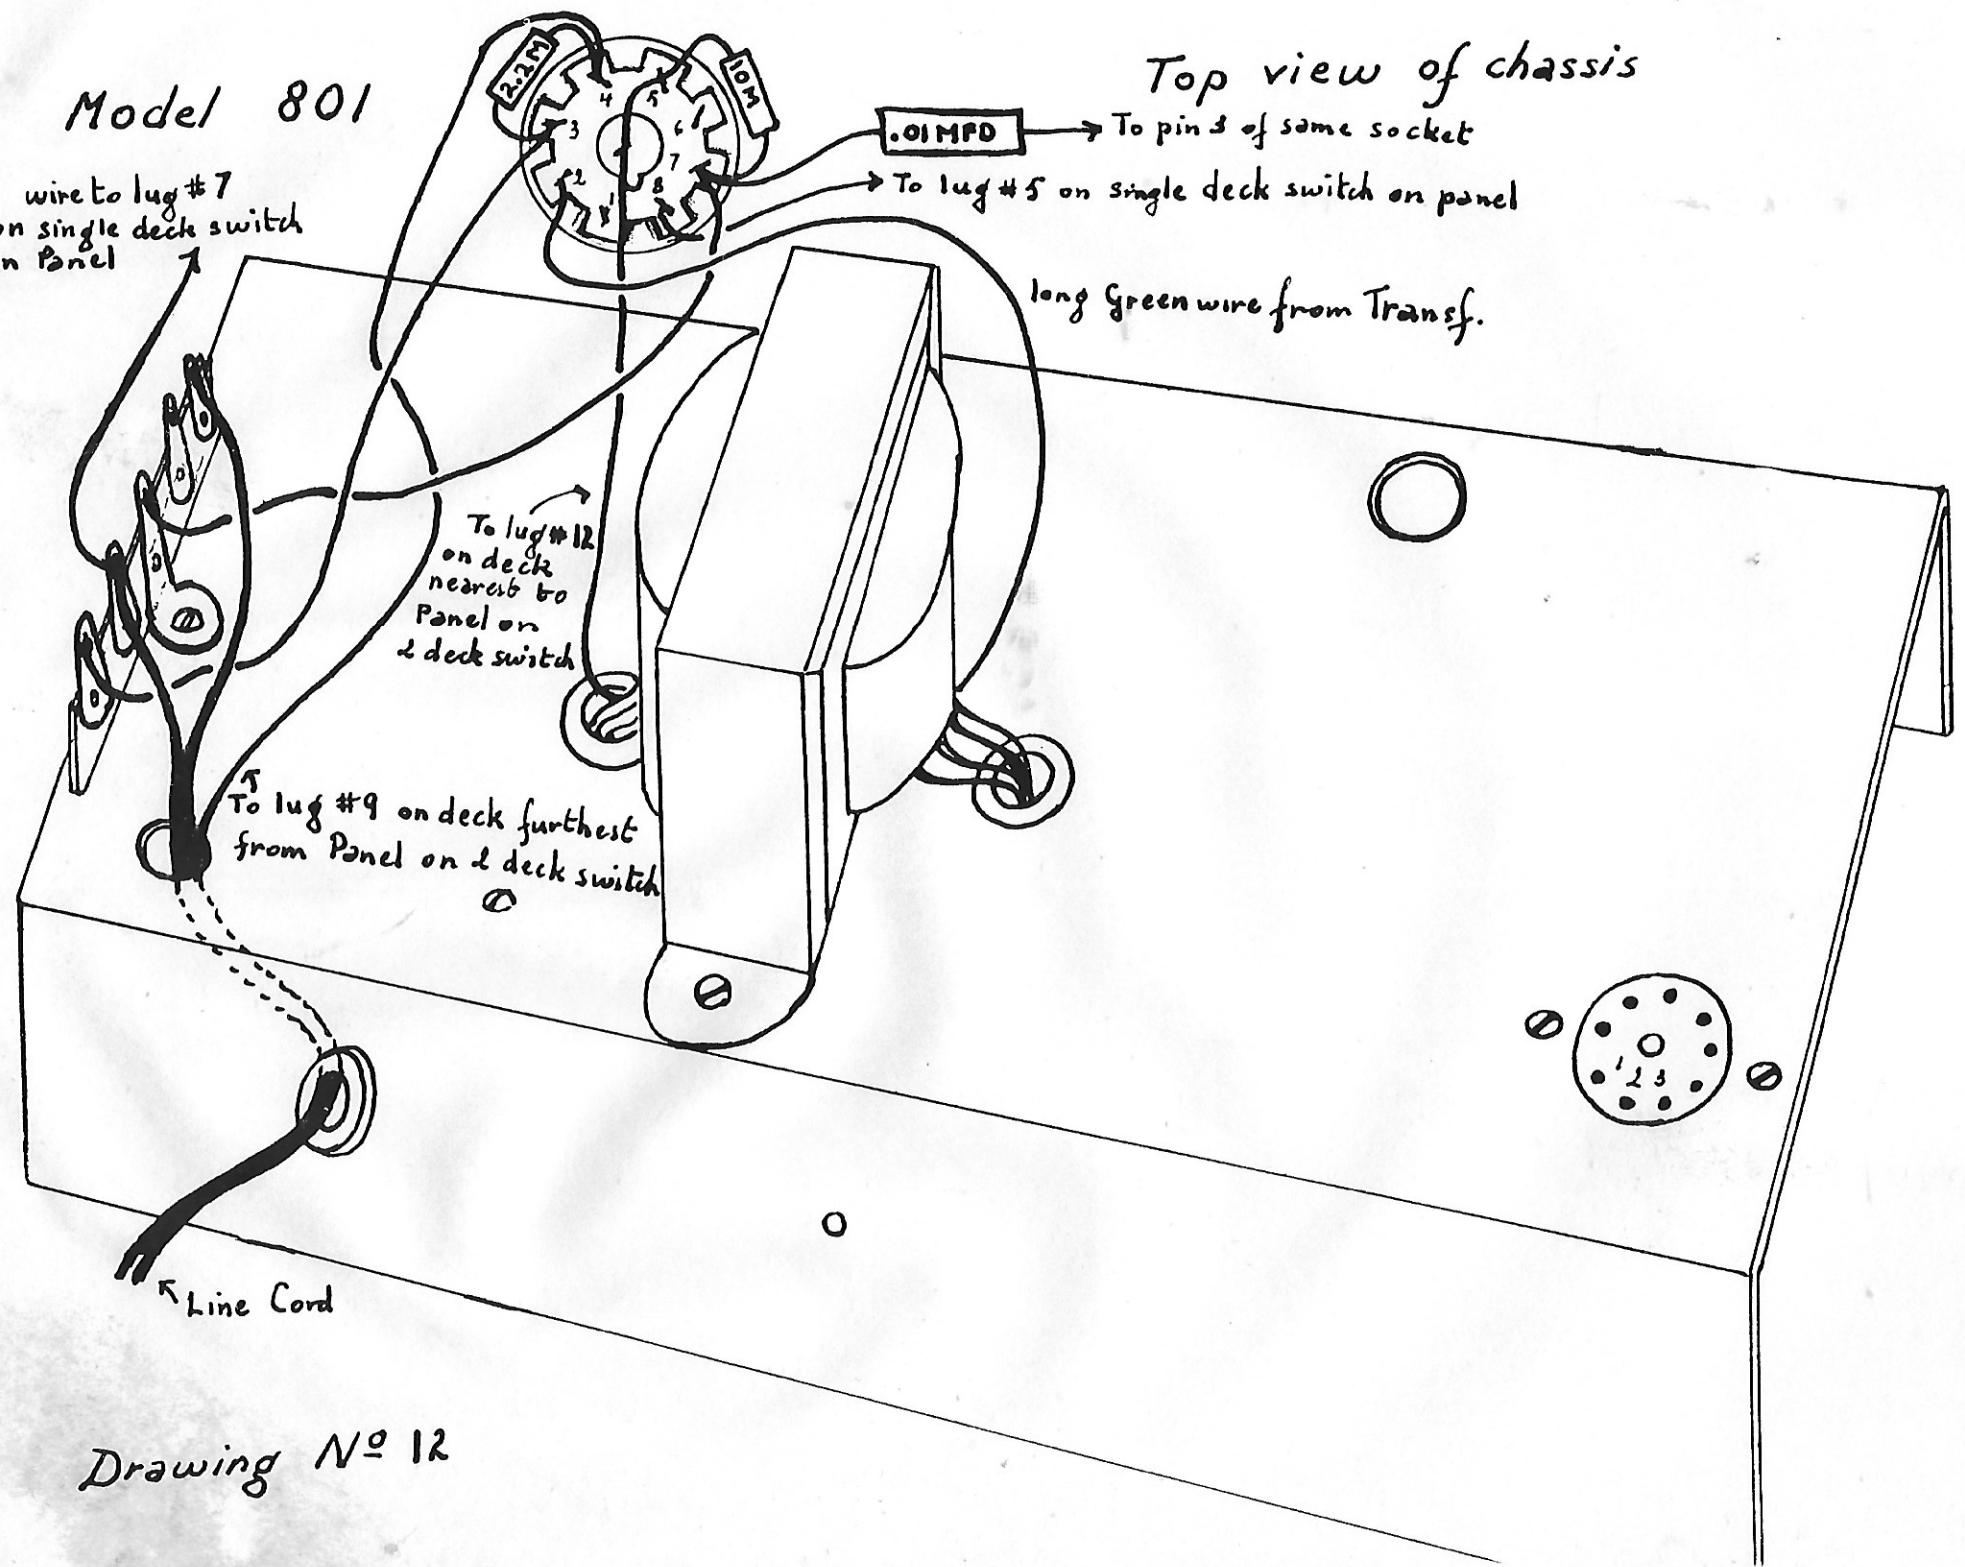 Model 801
Top view of chassis
2.2M
10M
.01MFD
To pin 3 of same socket
To lug #5 on single deck switch on panel
wire to lug #7
on single deck switch
n Panel
long Green wire from Transf.
4
5
3
6
7
2
8
1
To lug #12
on deck
nearest to
Panel on
2 deck switch
To lug #9 on deck furthest
from Panel on 2 deck switch
1 2 3
Line Cord
Drawing Nº 12